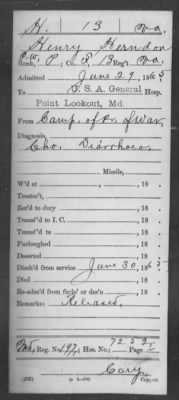 H. 13 Va.
Henry Herndon
Rank, Reg't Va.
Admitted June 29, 1865
To U. S. A. General Hosp.
Point Lookout, Md.
From Camp of Pr. of War.
Diagnosis,
Chr. Diarrhoea.
Missile,
W'd at , 18 .
Treatm't,
Ret'd to duty , 18 .
Transf'd to I. C. , 18 .
Transf'd to , 18 .
Furloughed , 18 .
Deserted , 18 .
Disch'd from service June 30, 1865
Died , 18 .
Re-adm'd from furlo' or des'n , 18 .
Remarks: Released.
Md. Reg. No. 197; Hos. No. 7252; Page
Cary,
Copyist.